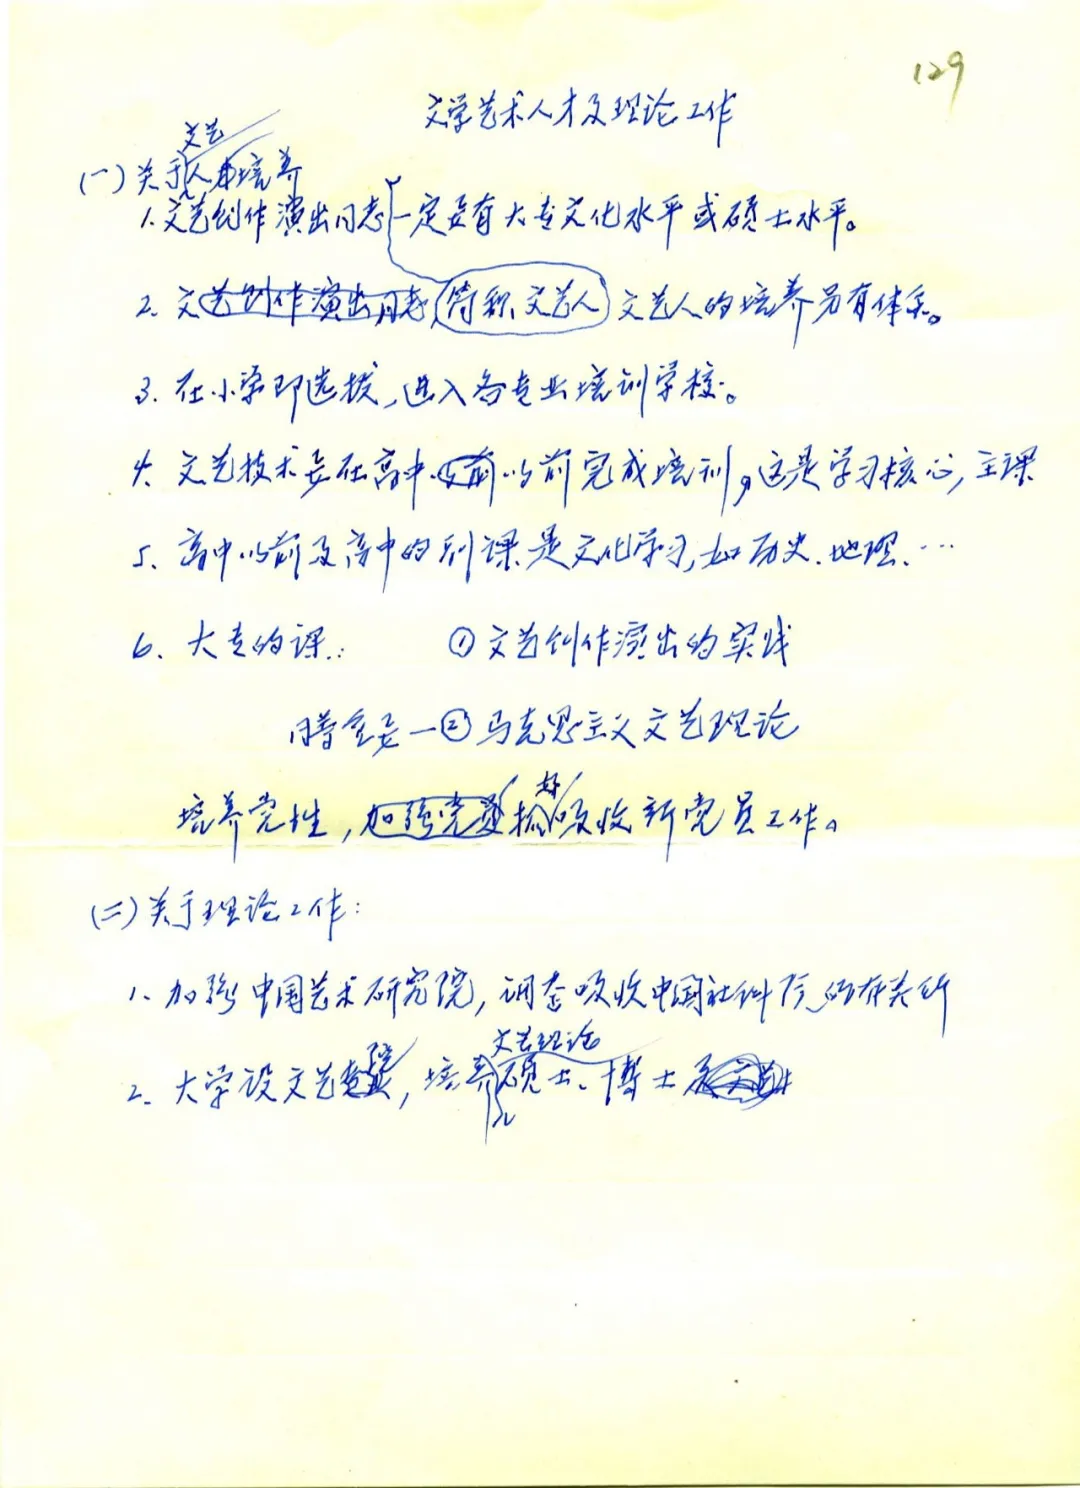 129
文学艺术人才及理论工作
文艺
(一)关于人才培养
1.文艺创作演出同志一定要有大专文化水平或硕士水平。
2. 文艺创作演出同志(简称文艺人)文艺人的培养另有体系。
3. 在小学即选拔,进入各专业培训学校。
4. 文艺技术要在高中以前完成培训,这是学习核心,主课
5、高中以前及高中的副课是文化学习,如历史、地理、…
6、大专的课: ①文艺创作演出的实践
②马克思主义文艺理论
好
培养党性,加强党 抓吸收新党员工作。
(二)关于理论工作:
1、加强中国艺术研究院,调整吸收中国社科院的有关所
院 文艺理论
2. 大学设文艺,培养硕士、博士